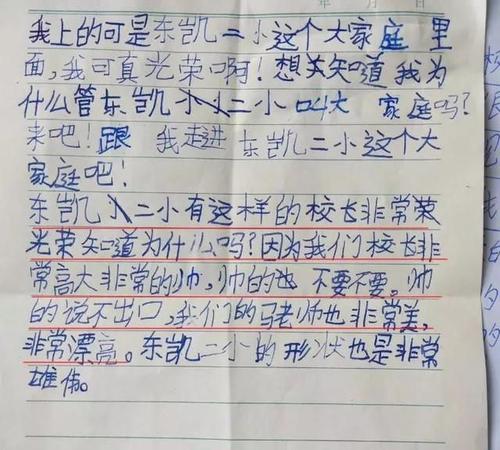 年 月 日
我上的可是东凯二小这个大家庭里
面,我可真光荣啊!想关知道我为
什么管东凯小二小叫大 家庭吗?
来吧!跟 我走进东凯二小这个大
家庭吧!
东凯二小有这样的校长非常荣
光荣知道为什么吗?因为我们校长非
常高大非常的帅,帅的也 不要不要。帅
的说不出口,我们的马老帅也非常美,
非常漂亮。东凯二小的形状也是非常
雄伟。